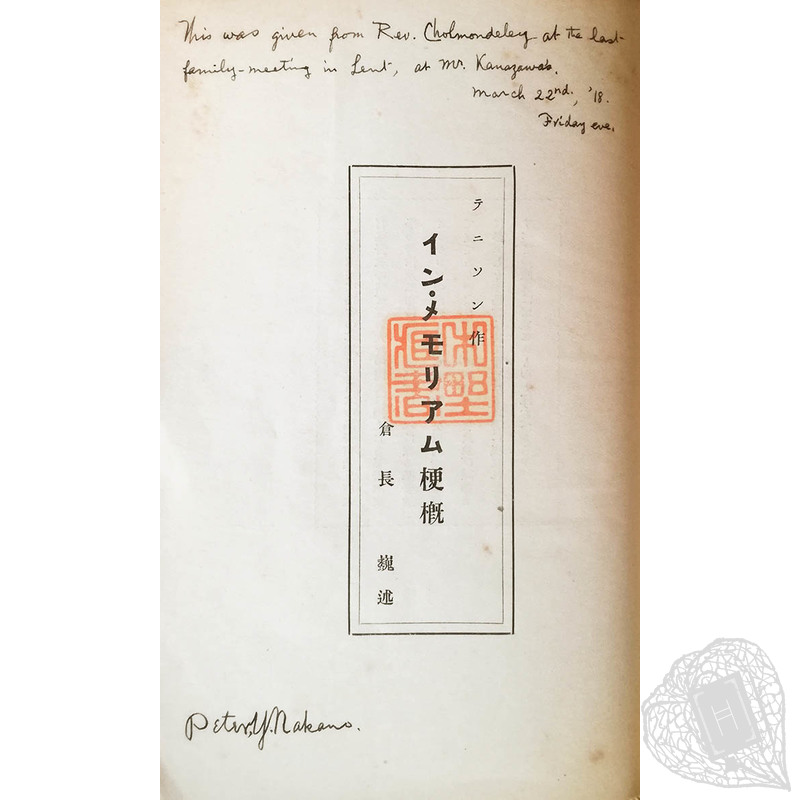 This was given from Rev. Cholmondeley at the last
family-meeting in Lent, at Mr. Kanazawa's.
March 22nd., '18.
Friday eve.
テニソン作
イン・メモリアム梗概
倉長巍述
Peter, Y. Nakano.
H